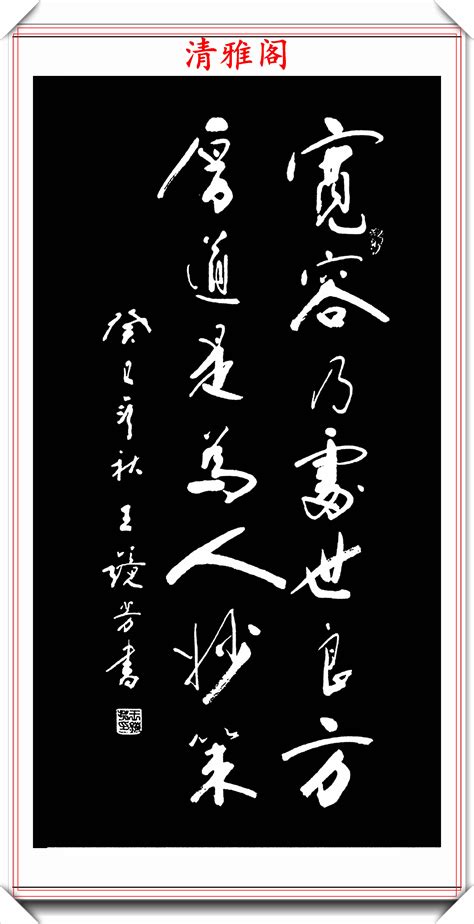 清雅阁
寬容乃處世良方
厚道是為人妙策
癸巳年秋王镜芳書